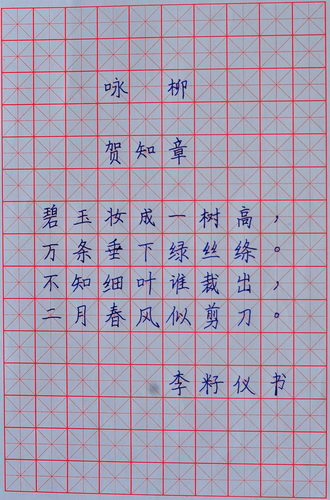 咏柳
贺知章
碧玉妆成一树高，
万条垂下绿丝绦。
不知细叶谁裁出，
二月春风似剪刀。
李籽仪书